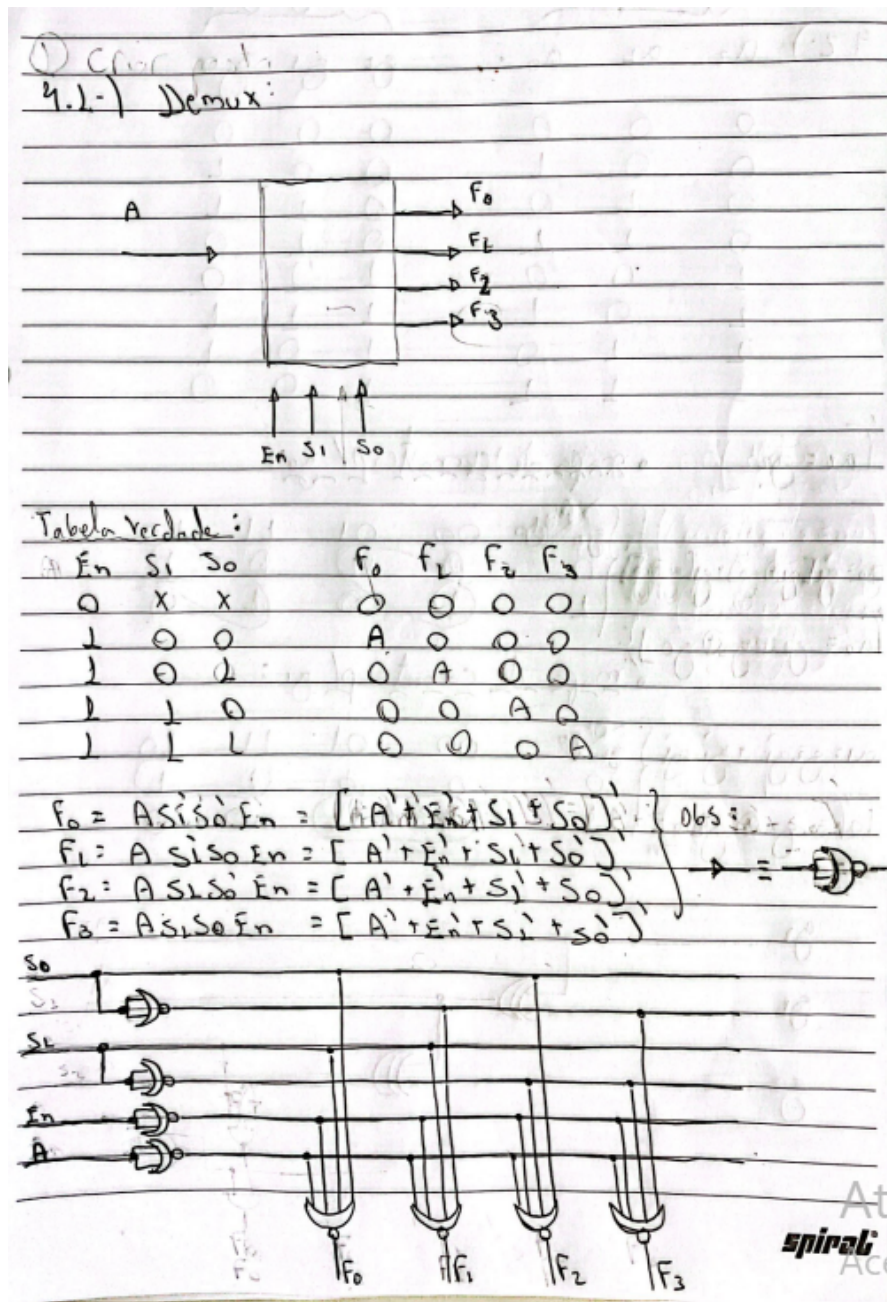 4.1-) Demux:
A
F0
F1
F2
F3
En S1 S0
Tabela verdade:
En S1 S0 F0 F1 F2 F3
0 X X 0 0 0 0
1 0 0 A 0 0 0
1 0 1 0 A 0 0
1 1 0 0 0 A 0
1 1 1 0 0 0 A
F0 = A S1' S0' En = [A' + En' + S1 + S0]' Obs:
F1 = A S1' S0 En = [A' + En' + S1 + S0']'
F2 = A S1 S0' En = [A' + En' + S1' + S0]'
F3 = A S1 S0 En = [A' + En' + S1' + S0']'
S0
S1
En
A
F0 F1 F2 F3
spiral